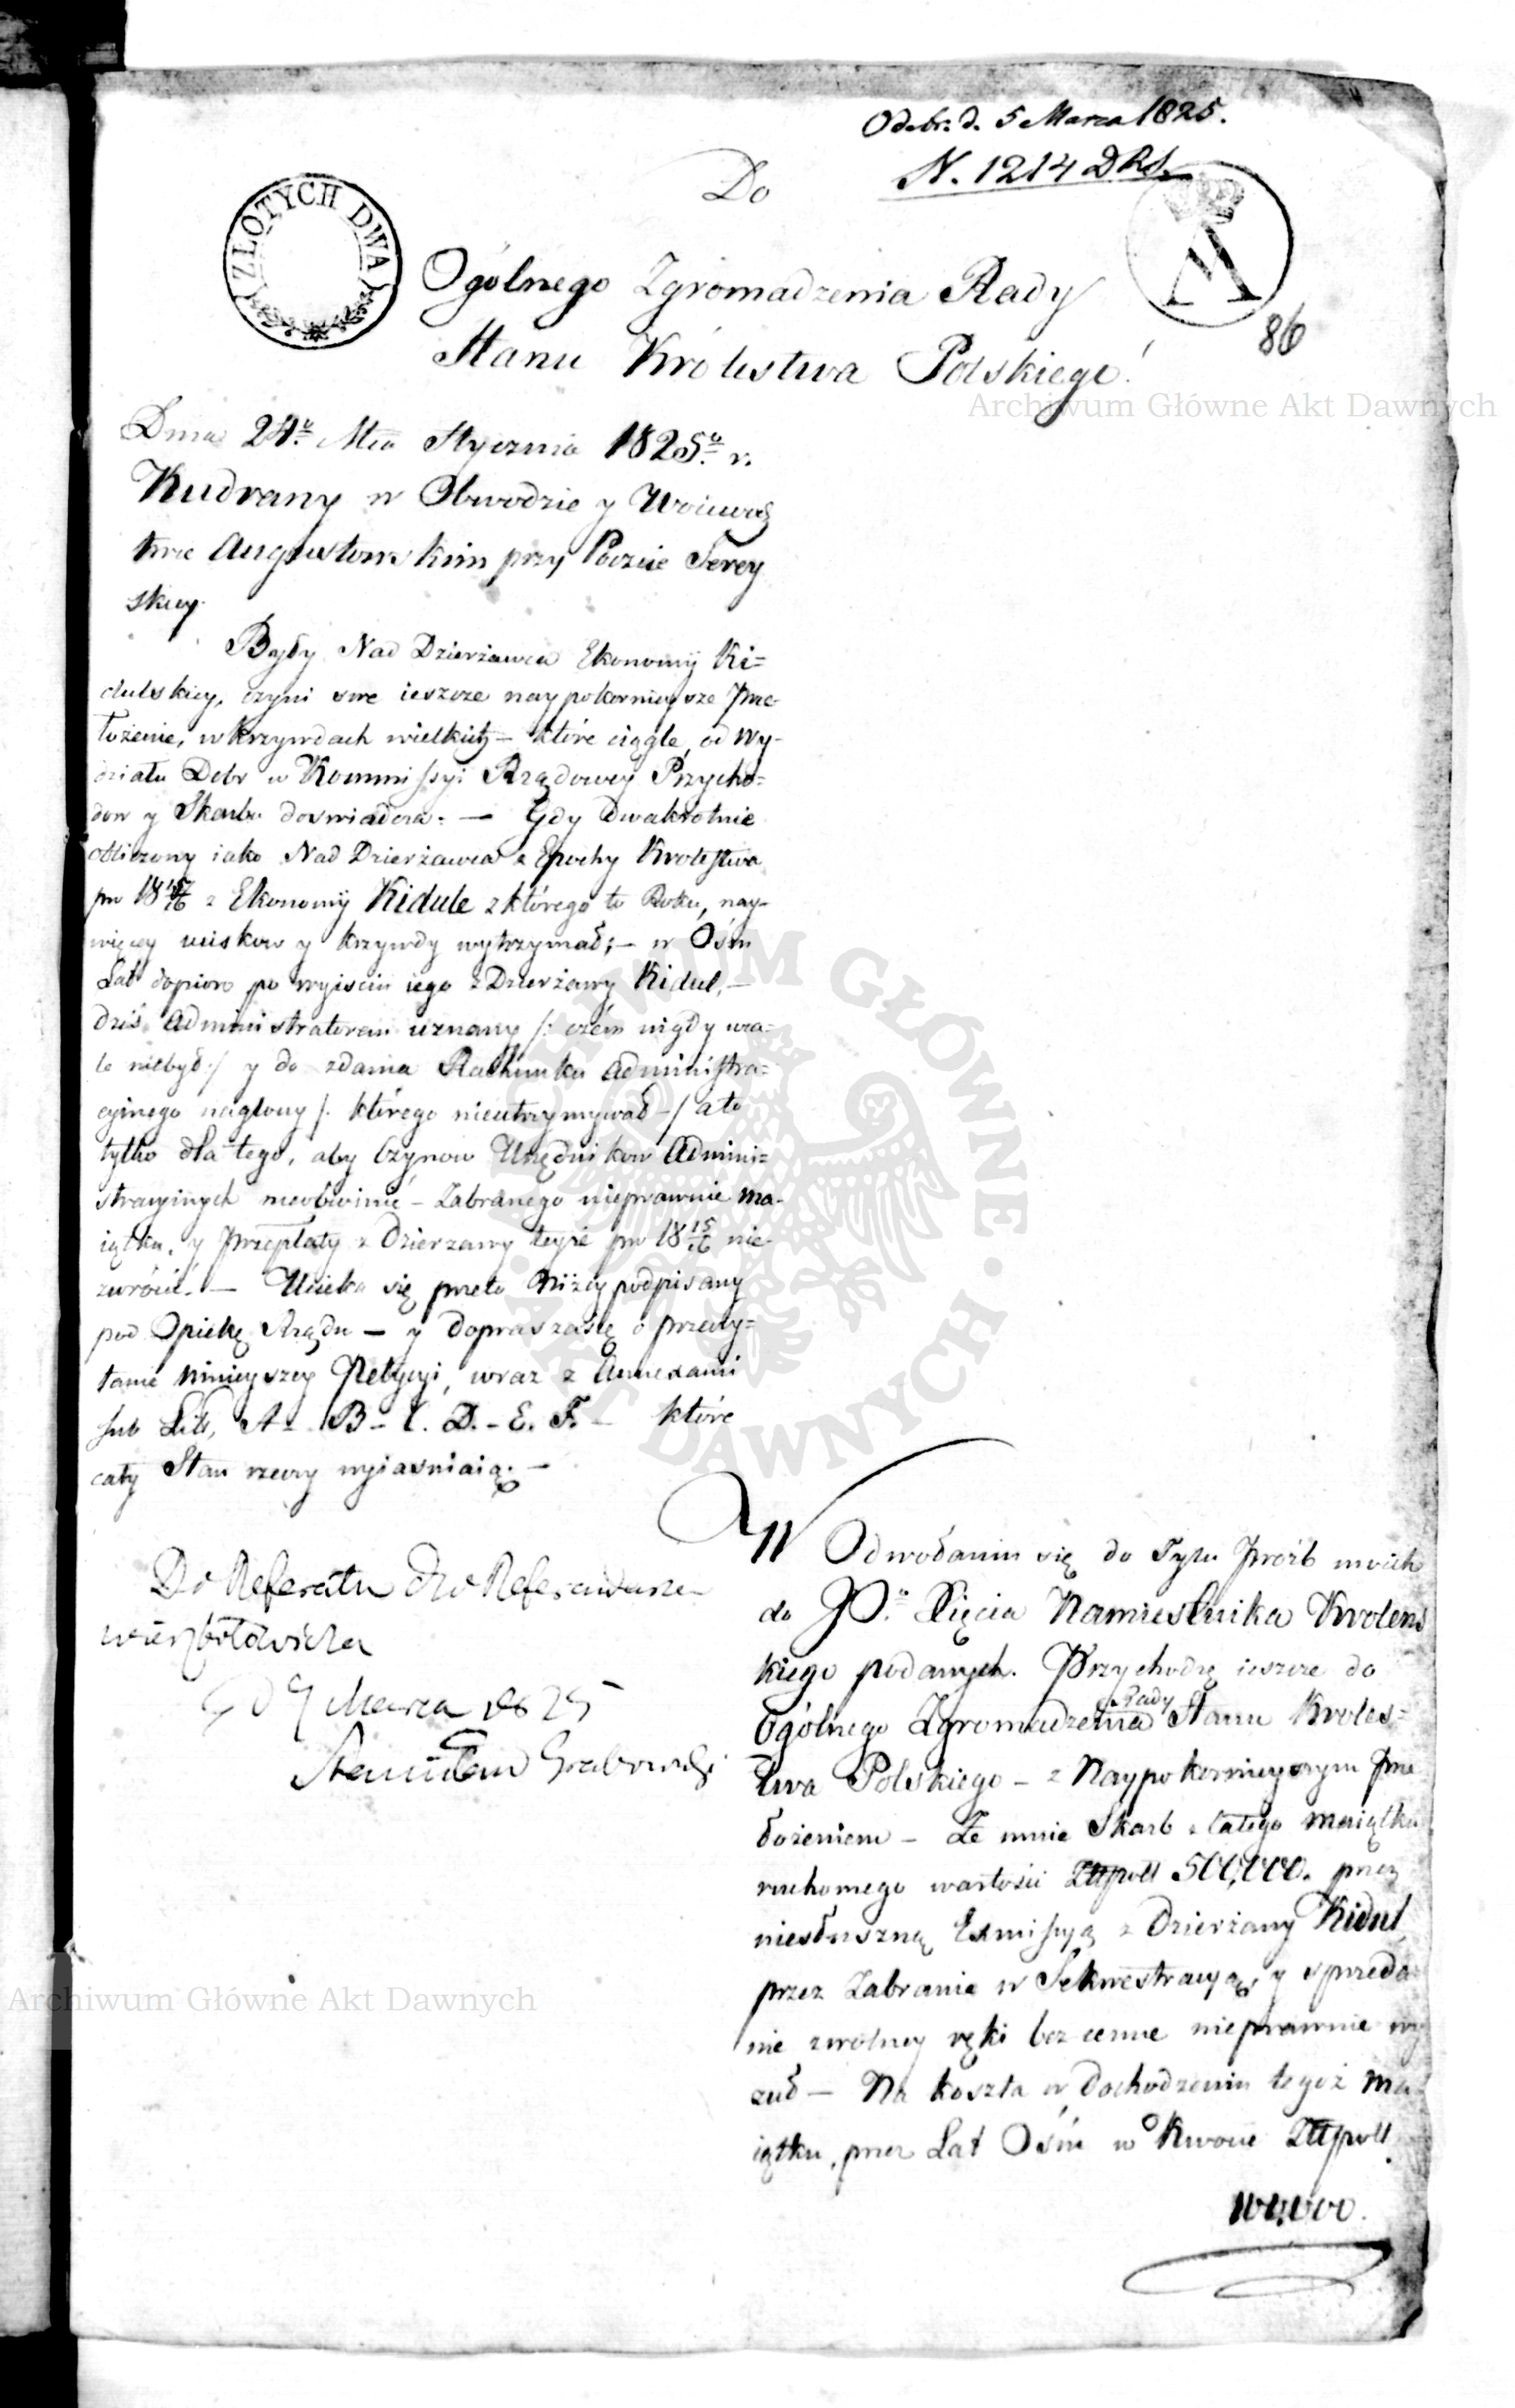 Odebr. d. 5 Marca 1825.
N. 1214 DRS.
Do
ZŁOTYCH DWA
86
Ogólnego Zgromadzenia Rady
Stanu Królestwa Polskiego!
Dnia 24º Mca Stycznia 1825º r.
Kudrany w Obwodzie y Woiewodz
twie Augustowskim przy Poczcie Serey
skiey.
Były Nad Dzierżawca Ekonomij Ki=
dulskiey, czyni swe ieszcze naypokornieysze Prze-
łożenie, w krzywdach wielkich – które ciągle, od Wy-
działu Dobr w Kommissyi Rządowey Przycho=
dow y Skarbu doswiadcza. – Gdy dwakrotnie
obliczony iako Nad Dzierżawca z Epochy Krolestwa
pro 18 15/16 z Ekonomij Kidule z którego to Roku, nay-
więcey ucisków y krzywdy wytrzymał; – w Ośm
Lat dopiero po wyisciu iego z Dzierżawy Kidul, –
dziś Administratorem uznany /: czém nigdy wca=
le niebył :/ y do zdania Rachunku Administra=
cyinego naglony /: którego nieutrzymywał – / a to
tylko dla tego, aby Czynow Urzędnikow Admini=
stracyinych nieobwinić – Zabranego nieprawnie Ma-
iątku, y Przepłaty z Dzierzawy teyże pro 18 15/16 nie-
zwrócić. – Ucieka się przeto Niżey podpisany
pod Opiekę Rządu – y dopraszasię o przeczy=
tanie Ninieyszey Petycyi, wraz z Annexami
sub Litt, A – B – C. D. – E. F. – które
cały Stan rzeczy wyiasniaią. –
Do Referatu dla Referendarza
Wierzbołowicza
d 9 Marca 1825
Stanisław Grabowski
W Odwołaniu się do Tylu Próźb moich
do JO.º Xięcia Namiestnika Krolews
kiego podanych. Przychodzę ieszcze do
Ogólnego Zgromadzenia Rady Stanu Kroles=
twa Polskiego – z Naypokornieyszym Prze
łożeniem – Że mnie Skarb z Całego Maiątku
ruchomego wartości Złłpoll 500,000. przez
niesłuszną Exmissyą z Dzierżawy Kidul
przez Zabranie w Sekwestracyą, y sprzeda=
nie zwolney ręki bez cenne nieprawnie wy
zuł – Na koszta w dochodzeniu tegoż Ma=
iątku, przez Lat Ośm w Kwocie Złłpoll
100,000.
Archiwum Główne Akt Dawnych
Archiwum Główne Akt Dawnych
ARCHIWUM GŁÓWNE AKT DAWNYCH